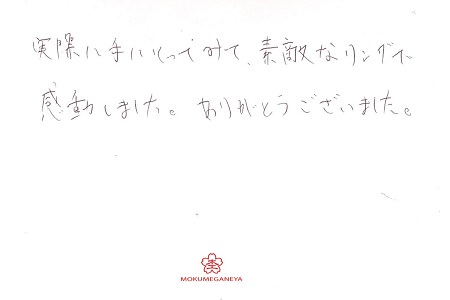 実際に手にとってみて、素敵なリングで
感動しました。ありがとうございました。
MOKUMEGANEYA